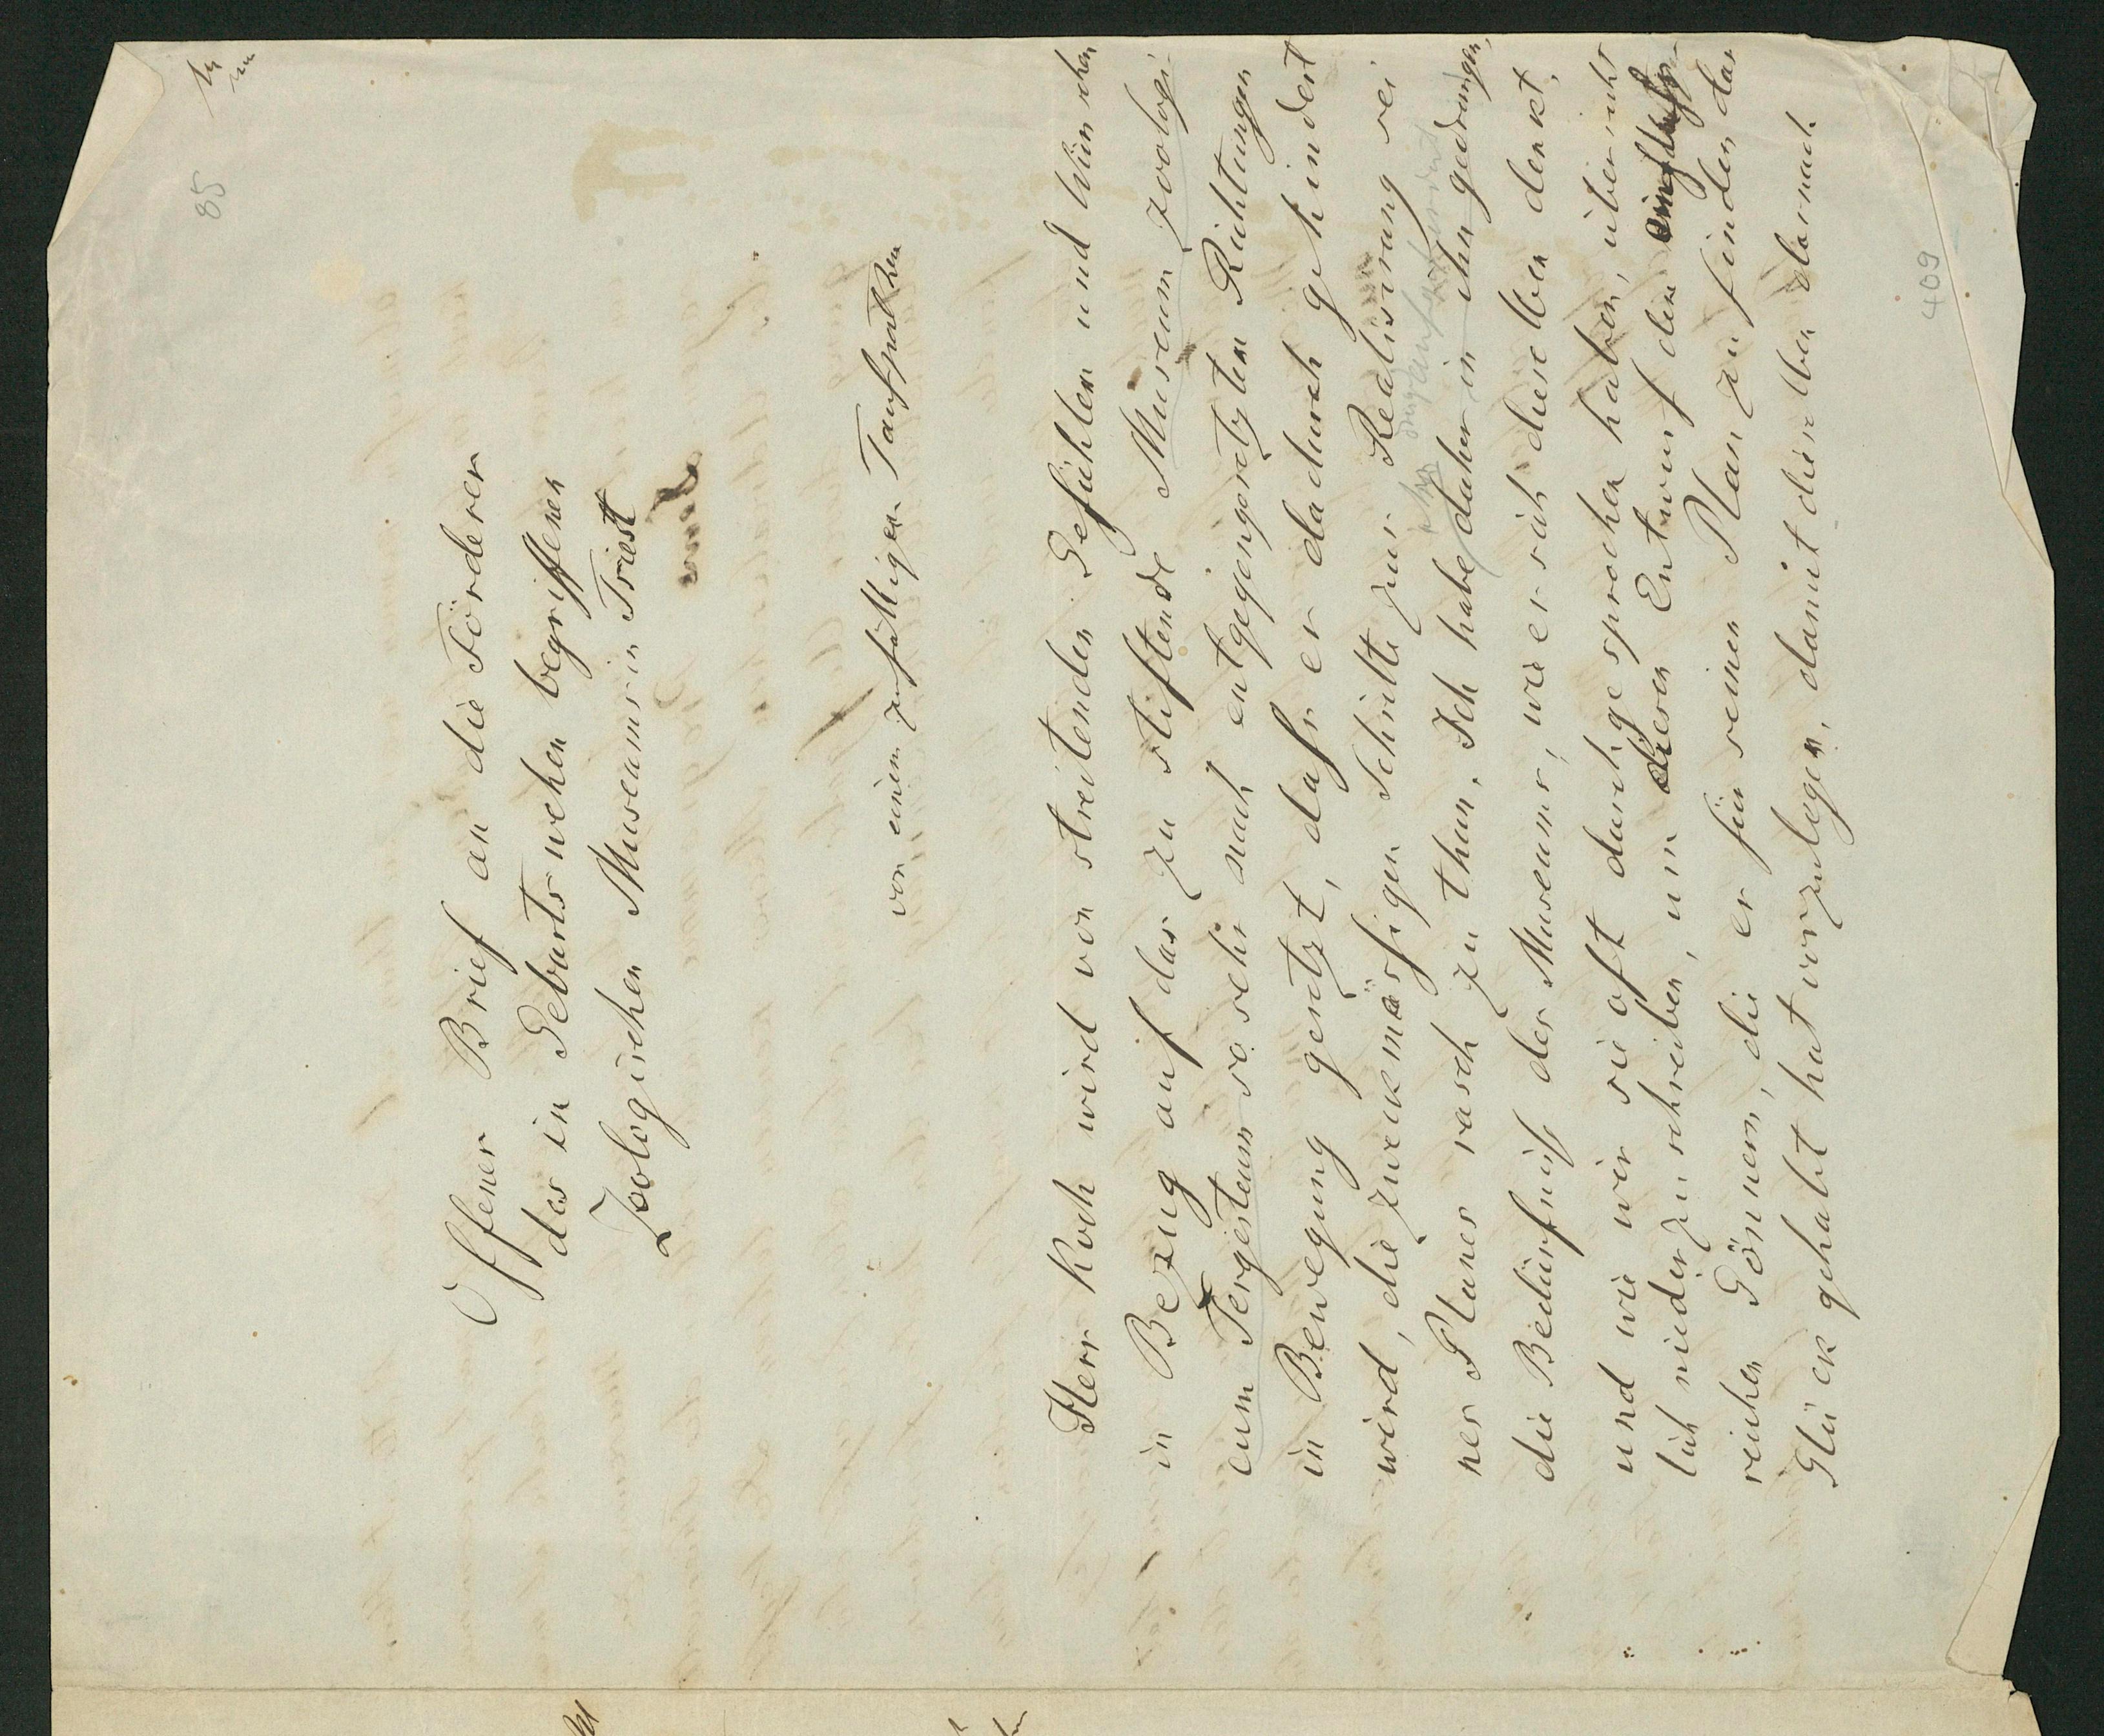 85
Offener Brief an die Förderer
des in Geburtswehen begriffenen
Zoologischen Museums in Triest
von einem zufälligen Taufpathen
Herr Koch wird von streitenden Gefühlen und Wünschen
in Bezug auf das zu stiftende Museum zoologi-
cum Tergesteum so sehr nach entgegengesetzten Richtungen
in Bewegung gesetzt, daſs er dadurch gehindert
wird, die zweckmäsſigen Schritte zur Realisirung sei
nes Planes rasch zu thun. Ich habe daher in ihn gedrungen,
die Bedürfniſs des Museums, wie er sich dieselben denkt,
und wie wir sie oft durchgesprochen haben, übersicht
lich niederzuschreiben, um diesen Entwurf den
reichen Gönnern, die er für seinen Plan zu finden das
Glück gehabt hat vorzulegen, damit dieselben darnach
409